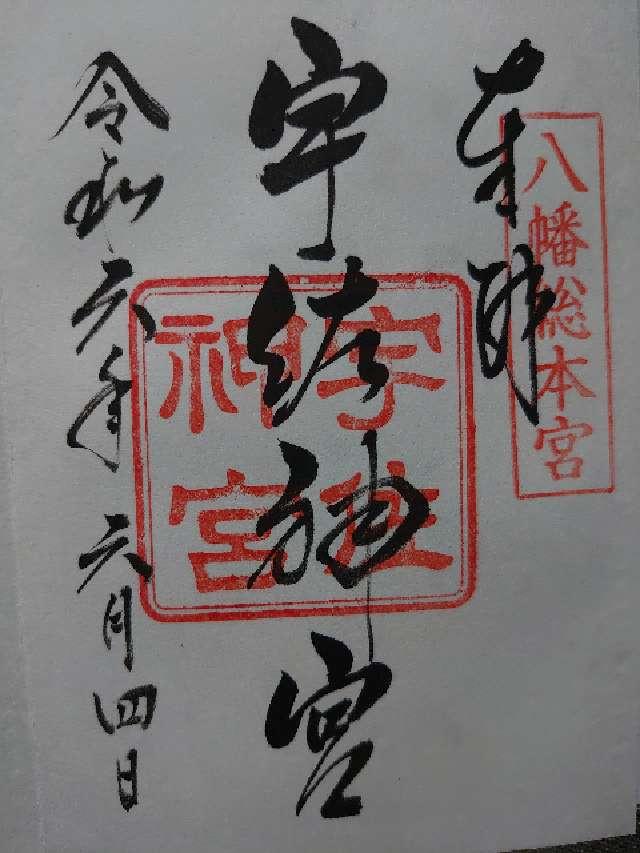 奉拝
八幡総本宮
宇佐神宮
宇佐
神宮
令和六年六月四日